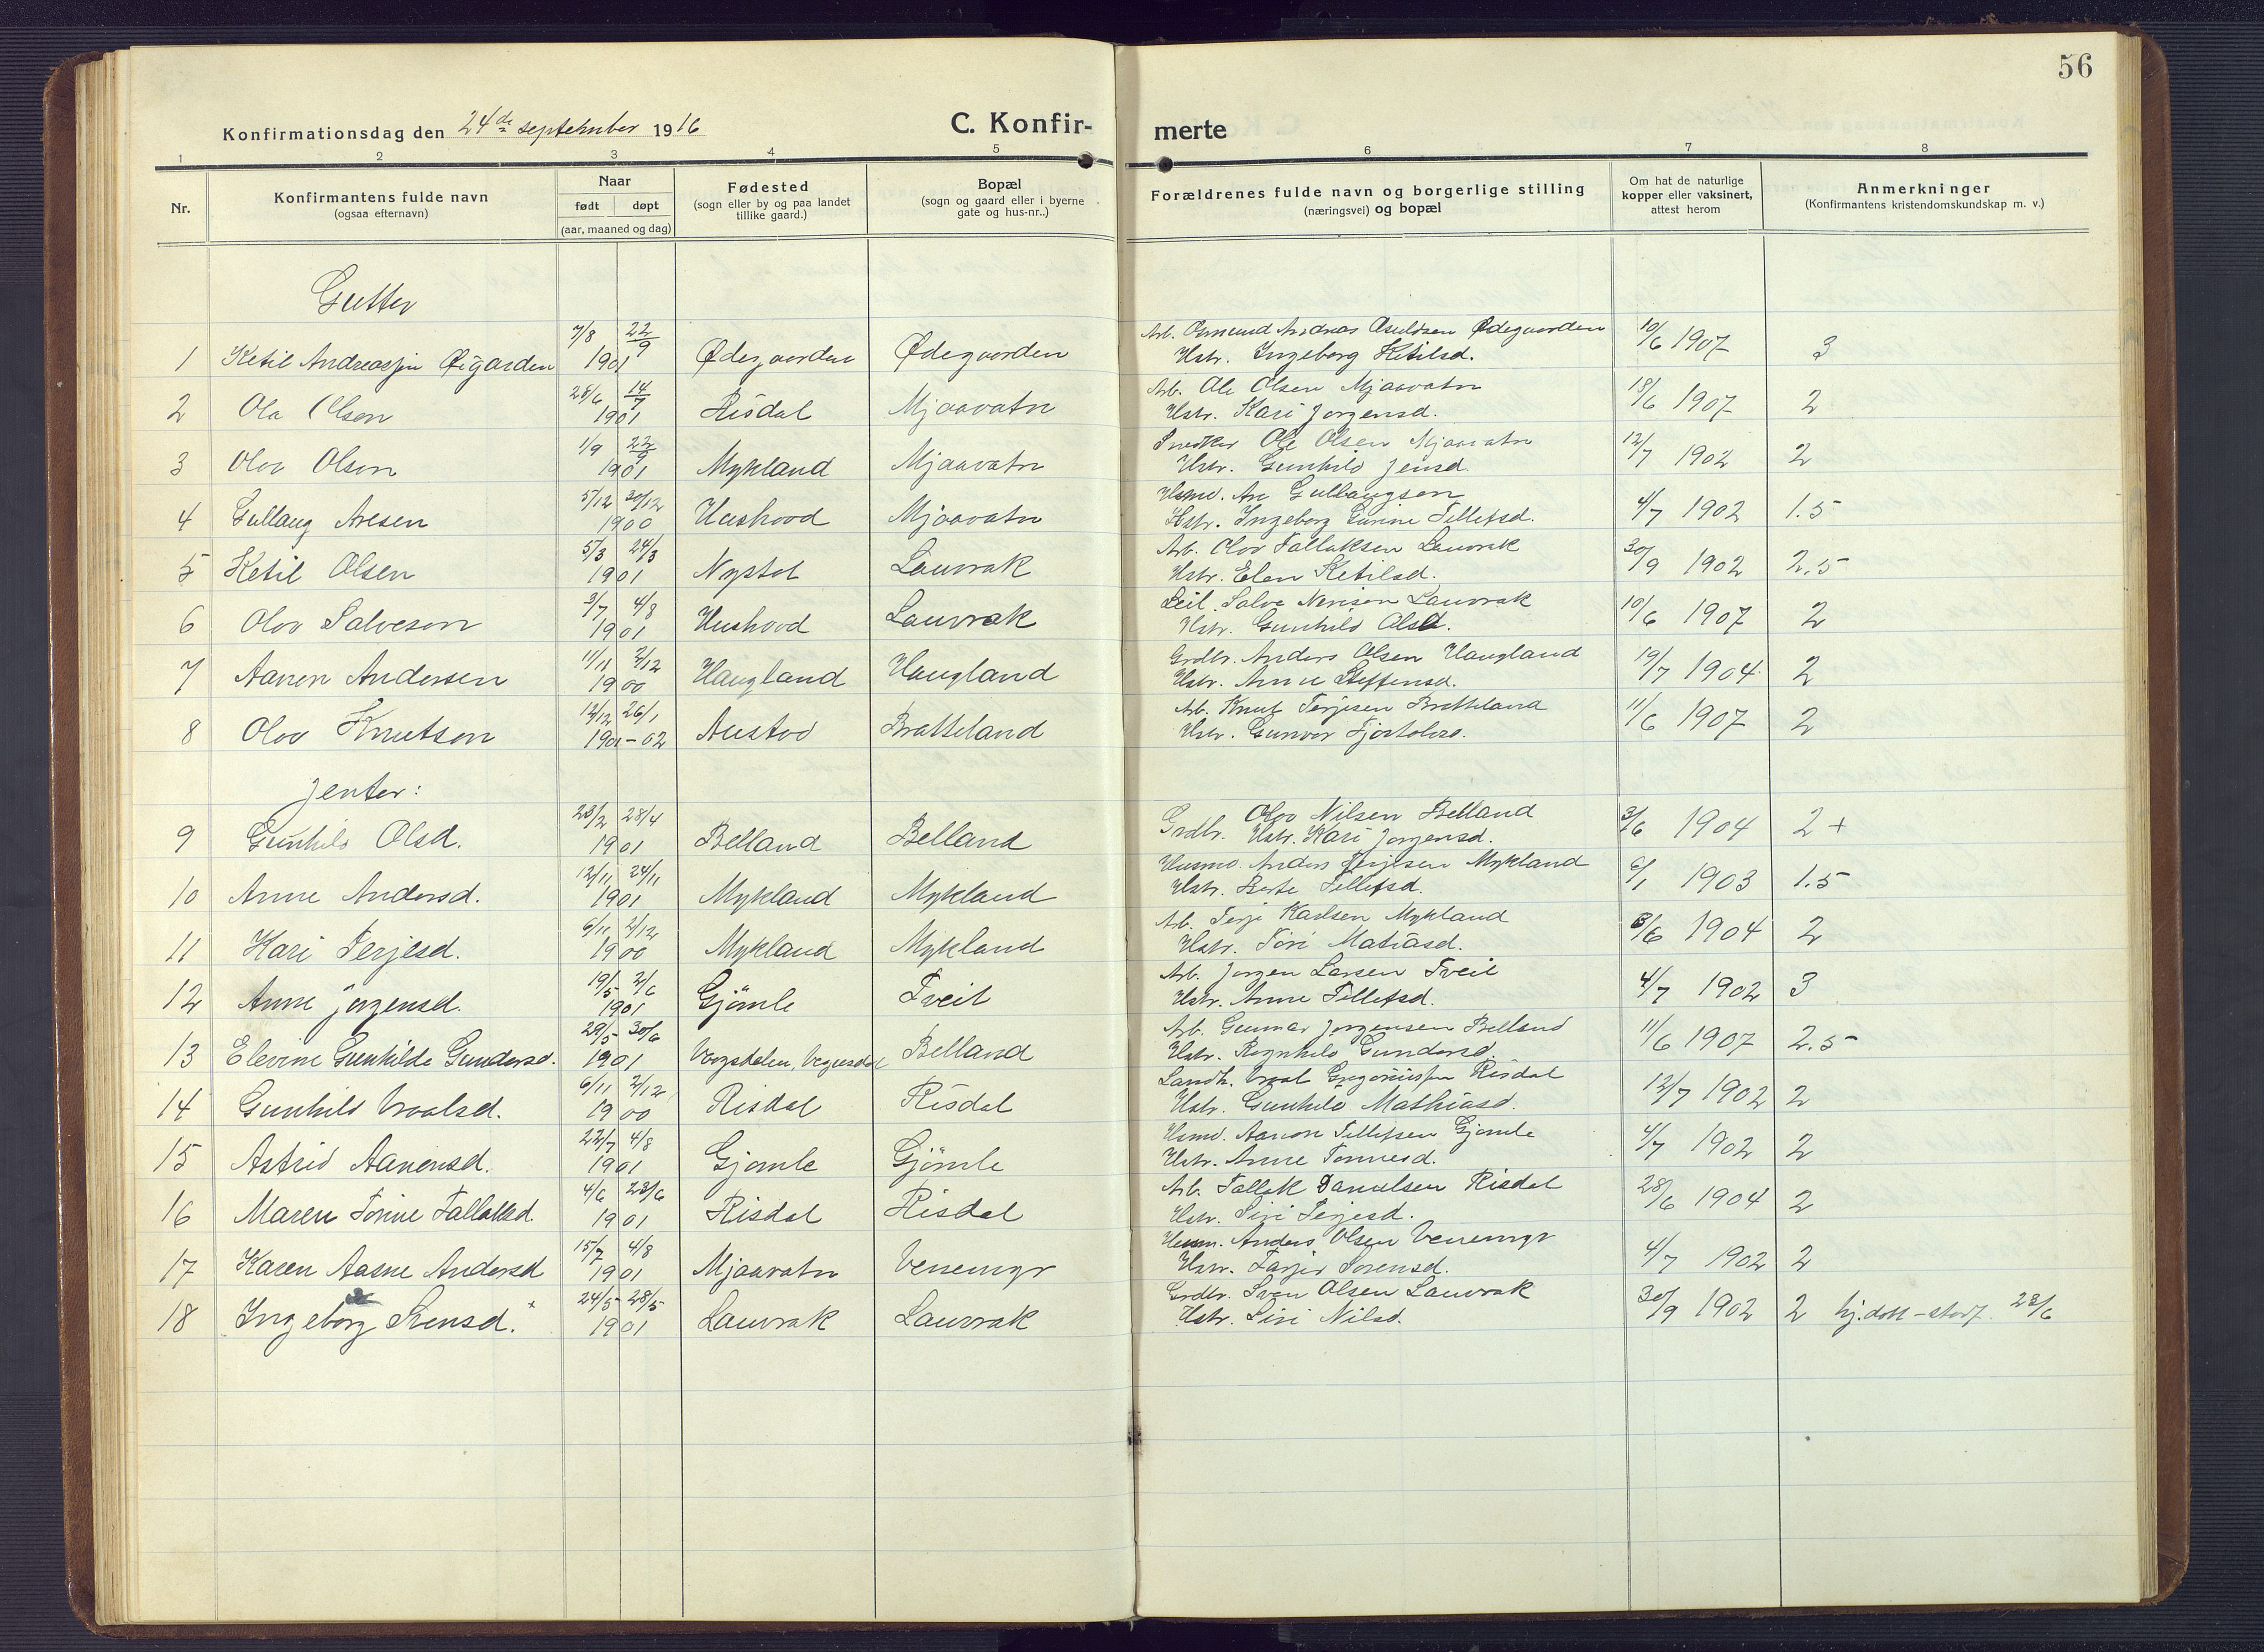 56
Konfirmationsdag den 24de september 1916
C. Konfir-
merte
1 2 3 4 5 6 7 8
Nr.
Konfirmantens fulde navn
(ogsaa efternavn)
Naar
født døpt
(aar, maaned og dag)
Fødested
(sogn eller by og paa landet
tillike gaard.)
Bopæl
(sogn og gaard eller i byerne
gate og hus-nr..)
Forældrenes fulde navn og borgerlige stilling
(næringsvei) og bopæl
Om hat de naturlige
kopper eller vaksinert,
attest herom
Anmerkninger
(Konfirmantens kristendomskundskap m. v.)
Gutter
7/8 22/9 Arb. Osmund Andreas Asuldsen Ødegaarden
1 Ketil Andreassen Øigarden 1901 Ødegaarden Ødegaarden Hstr. Ingeborg Ketilsd. 10/6 1907 3
28/6 14/7 Arb. Ole Olsen Mjaavatn
2 Ola Olsen 1901 Risdal Mjaavatn Hstr. Kari Jorgensd. 18/6 1907 2
1/9 22/9 Snedker Ole Olsen Mjaavatn
3 Olav Olson 1901 Mykland Mjaavatn Hstr. Gunhild Jensd. 12/7 1902 2
5/12 30/12 Hsmd. Are Gullaugsen
4 Gullaug Aresen 1900 Hushovd Mjaavatn Hstr. Ingeborg Gurine Tellefsd. 4/7 1902 1.5
5/3 24/3 Arb. Olov Tallaksen Lauvrak
5 Ketil Olsen 1901 Nystol Lauvrak Hstr. Elen Ketilsd. 30/9 1902 2.5
3/7 4/8 Leil. Salve Nerisen Lauvrak
6 Olov Salveson 1901 Hushovd Lauvrak Hstr. Gunhild Olsd. 10/6 1907 2
11/11 2/12 Grdbr. Anders Olsen Haugland
7 Aanen Andersen 1900 Haugland Haugland Hstr. Anne Steffensd. 19/7 1904 2
12/12 26/1 Arb. Knut Terjesen Bratteland
8 Olov Knutson 1901-02 Austad Bratteland Hstr. Gunvor 11/6 1907 2
Jenter:
23/2 28/4 Grdbr. Olov Nilsen Belland
9 Gunhild Olsd. 1901 Belland Belland Hstr. Kari Jorgensd. 3/6 1904 2+
12/11 24/11 Husmd. Anders Terjesen Mykland
10 Anne Andersd. 1901 Mykland Mykland Hstr. Berte Tellefsd. 6/1 1903 1.5
6/11 2/12 Arb. Terje Karlsen Mykland
11 Kari Terjesd. 1900 Mykland Mykland Hstr. Tori Matiasd. 3/6 1904 2
19/5 2/6 Arb. Jorgen Larsen Tveit
12 Anne Jorgensd. 1901 Gjömle Tveit Hstr. Anne Tellefsd. 4/7 1902 3
29/5 30/6 Arb. Gunnar Jorgensen Belland
13 Elevine Gunhilde Gundersd. 1901 Vegusdal Belland Hstr. Ragnhild Gundersd. 11/6 1907 2.5
6/11 2/12 Landh. Vraal Gregoriussen Risdal
14 Gunhild Vraalsd. 1900 Risdal Risdal Hstr. Gunhild Mathiasd. 12/7 1902 2
22/7 4/8 Hsmd. Aanon Tellefsen Gjomle
15 Astrid Aanensd. 1901 Gjomle Gjömle Hstr. Anne Tonnesd. 4/7 1902 2
4/6 23/6 Arb. Tallak Danielsen Risdal
16 Maren Tomine Tallaksd. 1901 Risdal Risdal Hstr. Siri Terjesd. 28/6 1904 2
15/7 4/8 Husm. Anders Olsen Venemyr
17 Karen Aasne Andersd 1901 Mjaavatn Venemyr Hstr. Tarjer Sorensd. 4/7 1902 2
24/5 28/5 Grdbr. Sven Olsen Lauvrak
18 Ingeborg Svensd. 1901 Lauvrak Lauvrak Hstr. Siri Nilsd. 30/9 1902 2 hj.døbt - stadf. 23/6